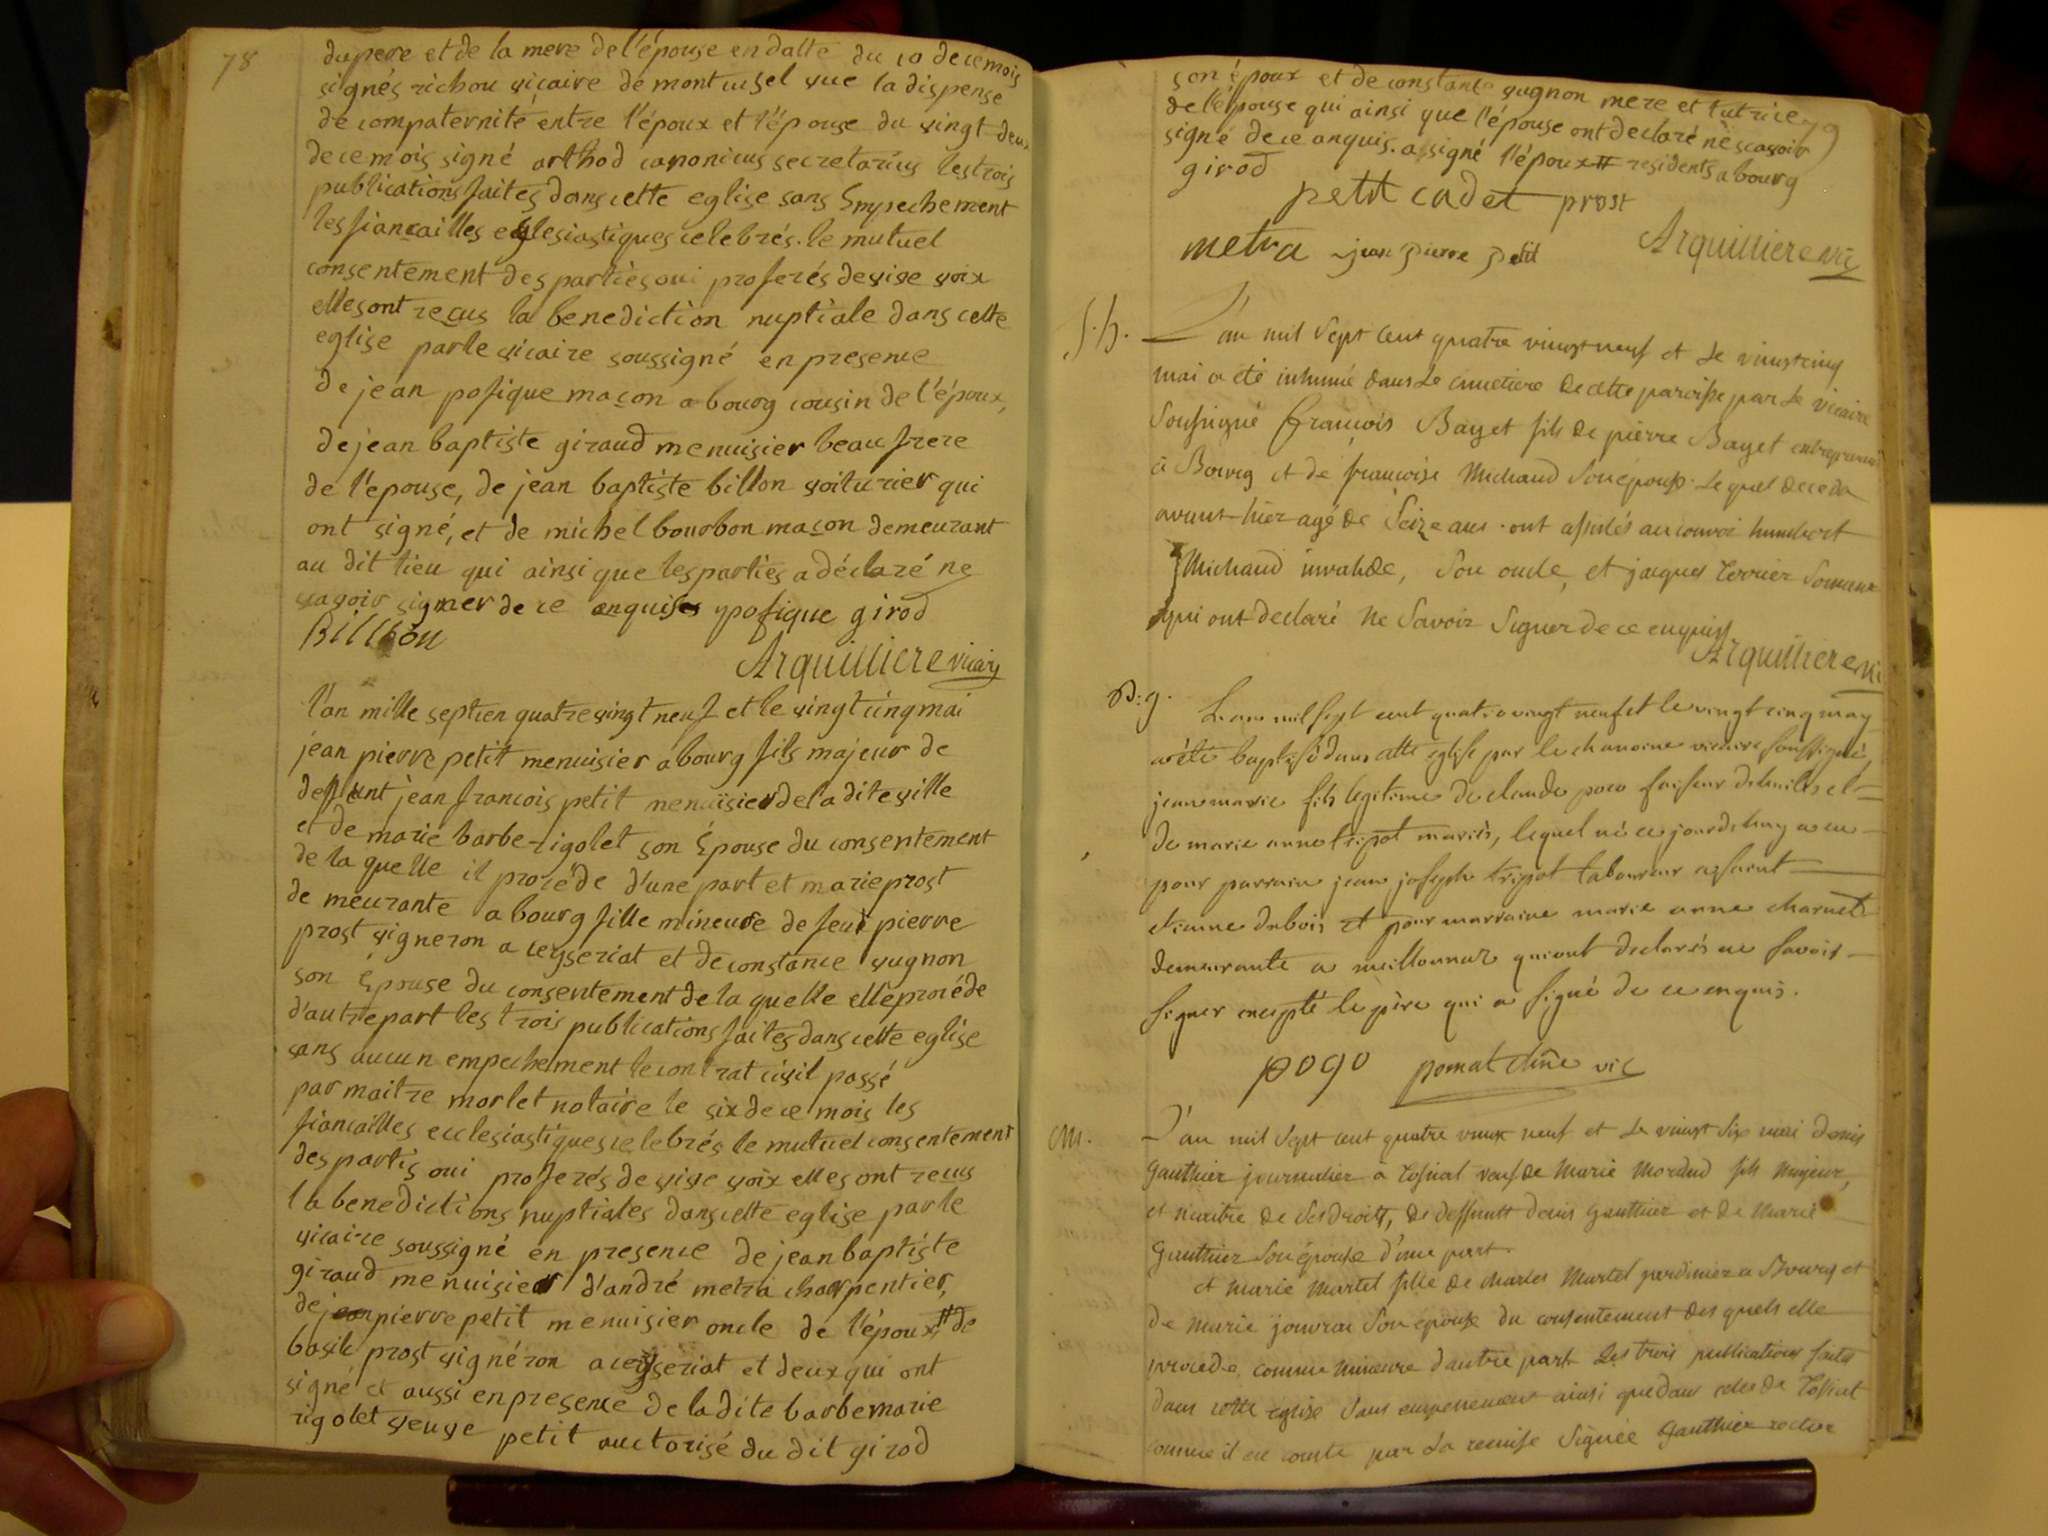 78
du pere et de la mere de l'épouse en datte du 10 de ce mois
signés richou vicaire de mont cusel vue la dispense
de compaternité entre l'époux et l'épouse du vingt deux
de ce mois signé arthod canonicus secretarius les trois
publications faites dans cette eglise sans Empechement
les fiancailles eclesiastiques celebrés. le mutuel
consentement des partiès oui proferés de vive voix
elles ont recus la benediction nuptiale dans cette
eglise par le vicaire soussigné en presence
de jean pofique maçon a bourg cousin de l'époux,
de jean baptiste giraud menuisier beau frere
de l'epouse, de jean baptiste billon voiturier qui
ont signé, et de michel bourbon maçon demeurant
au dit lieu qui ainsi que les partiés a déclaré ne
savoir signer de ce enquises pofique girod
Billion
Arquilliere vicaire
l'an mille septcen quatre vingt neuf et le vingt cinq mai
jean pierre petit menuisier a bourg fils majeur de
defunt jean francois petit menuisier de la dite ville
et de marie barbe rigolet son Épouse du consentement
de la quelle il procéde d'une part et marie prost
de meurante a bourg fille mineure de feu pierre
prost vigneron a ceyseriat et de constance vugnon
son Épouse du consentement de la quelle elle procéde
d'autre part les trois publications faites dans cette eglise
sans aucun empechement le contrat civil passé
par maitre morlet notaire le six de ce mois les
fiancailles ecclesiastiques celebrés le mutuel consentement
des partis oui proferés de vive voix elles ont recus
la benedictions nuptiales dans cette eglise par le
vicaire soussigné en presence de jean baptiste
giraud menuisier d'andré metra charpentier,
de jean pierre petit menuisier oncle de l'époux, # de
basile prost vignéron a ceyseriat et deux qui ont
signé et aussi en presence de la dite barbe marie
rigolet veuve petit auctorisé du dit girod
79
son époux et de constante vugnon mere et tutrice
de l'épouse qui ainsi que l'épouse ont declaré ne scavoir
signé de ce anquis. a signé l'époux # residents a bourg
girod
petit cadet prost
metra jean pierre petit
Arquilliere vic
S.h. L'an mil Sept Cent quatre vingt neuf et Le vingt cinq
mai a été inhumé dans Le cimetiere De cette paroisse par Le vicaire
Soussigné François Bayet fils De pierre Bayet entrepreneur
à Bourg et de françoise Michaud Son épouse. Le quel deceda
avant-hier agé De Seize ans. ont assistés au convoi humbert
Michaud invalide, Son oncle, et jacques terrier
qui ont declaré ne Savoir Signer de ce enquis
Arquilliere vic
B:g. L'an mil sept cent quatre vingt neuf et le vingt cinq may
a été baptisé dans cette eglise par le chanoine vicaire soussigné,
jean marie fils légitime de claude pogo faiseur de et
de marie anne tripot mariés, lequel né ce jourd'huy a eu
pour parrain jean joseph tripot laboureur a saint
etienne dubois et pour marraine marie anne charnet
demeurante a meillonnaz qui ont declarés ne savoir
signer excepté le père qui a signé de ce enquis.
pogo pomat chne vic
M. L'an mil Sept cent quatre vingt neuf et Le vingt Six mai denis
Gauthier journalier a tossiat veuf De Marie Moraud fils Majeur,
et maître de Ses droits, de deffunts denis Gauthier et de Marie
Gauthier Son épouse d'une part.
et marie Martel fille de charles Martel jardinier a Bourg et
De Marie jouvrai Son épouse du consentement des quels elle
procede comme mineure d'autre part Les trois publications faites
dans cette eglise Sans empechement ainsi que dans celle de Tossiat
comme il en conste par La remise Signée Gauthier recteur